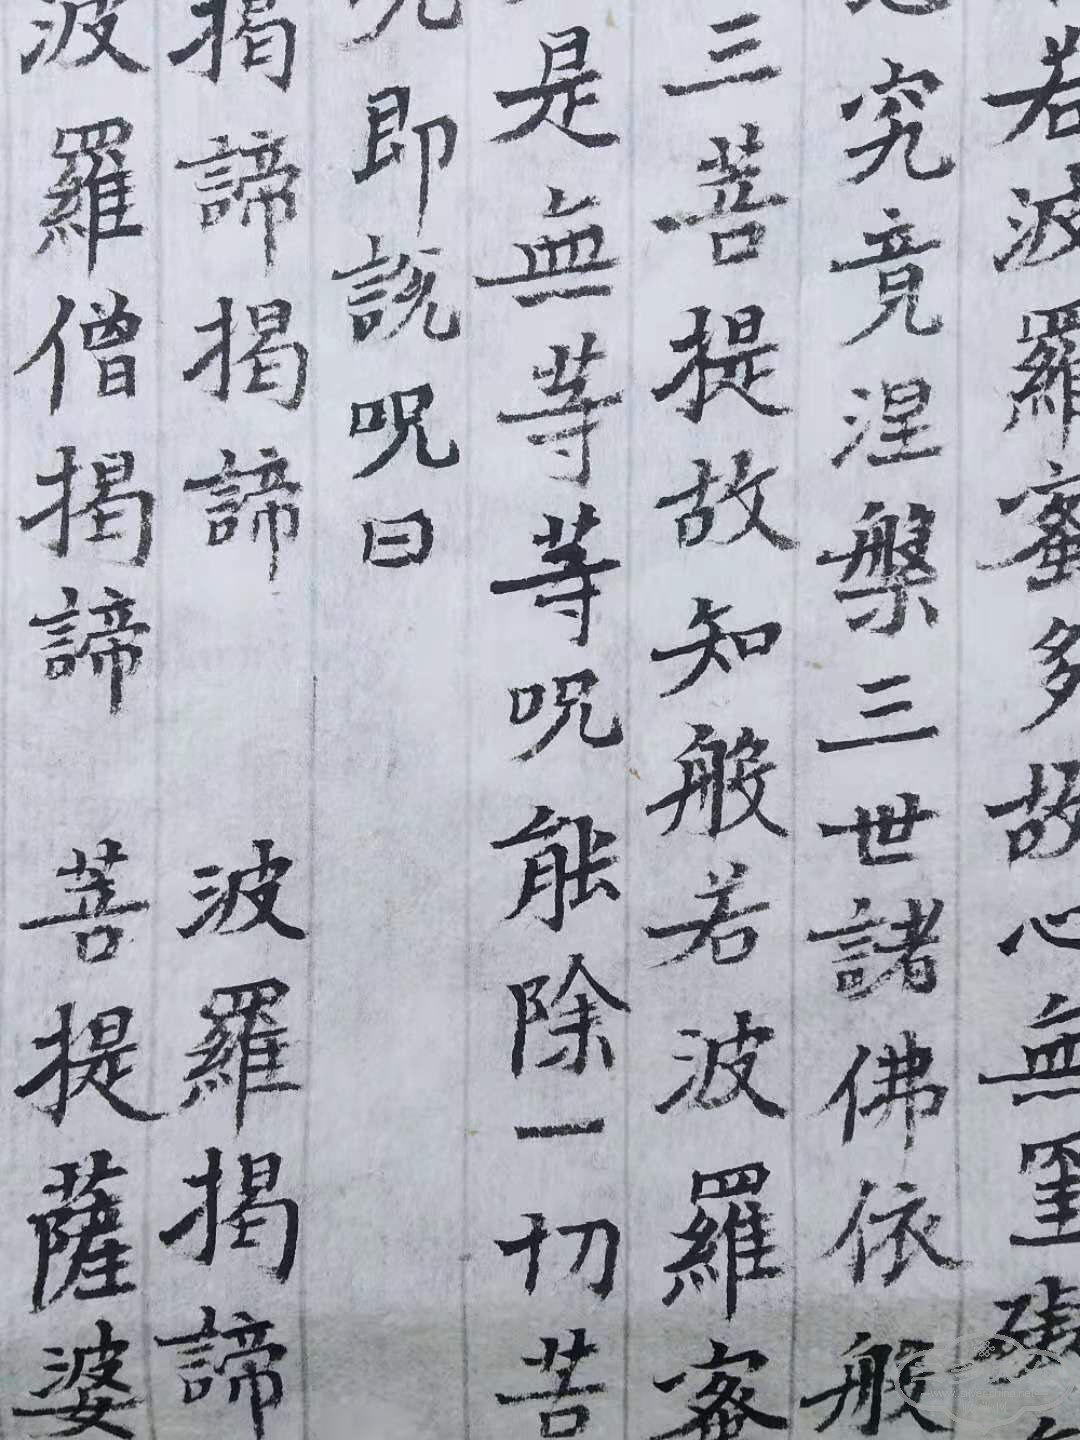 若波羅蜜多故心無罣礙
究竟涅槃三世諸佛依般
三菩提故知般若波羅蜜
是無等等呪能除一切苦
呪即說呪曰
揭諦揭諦 波羅揭諦
波羅僧揭諦 菩提薩婆